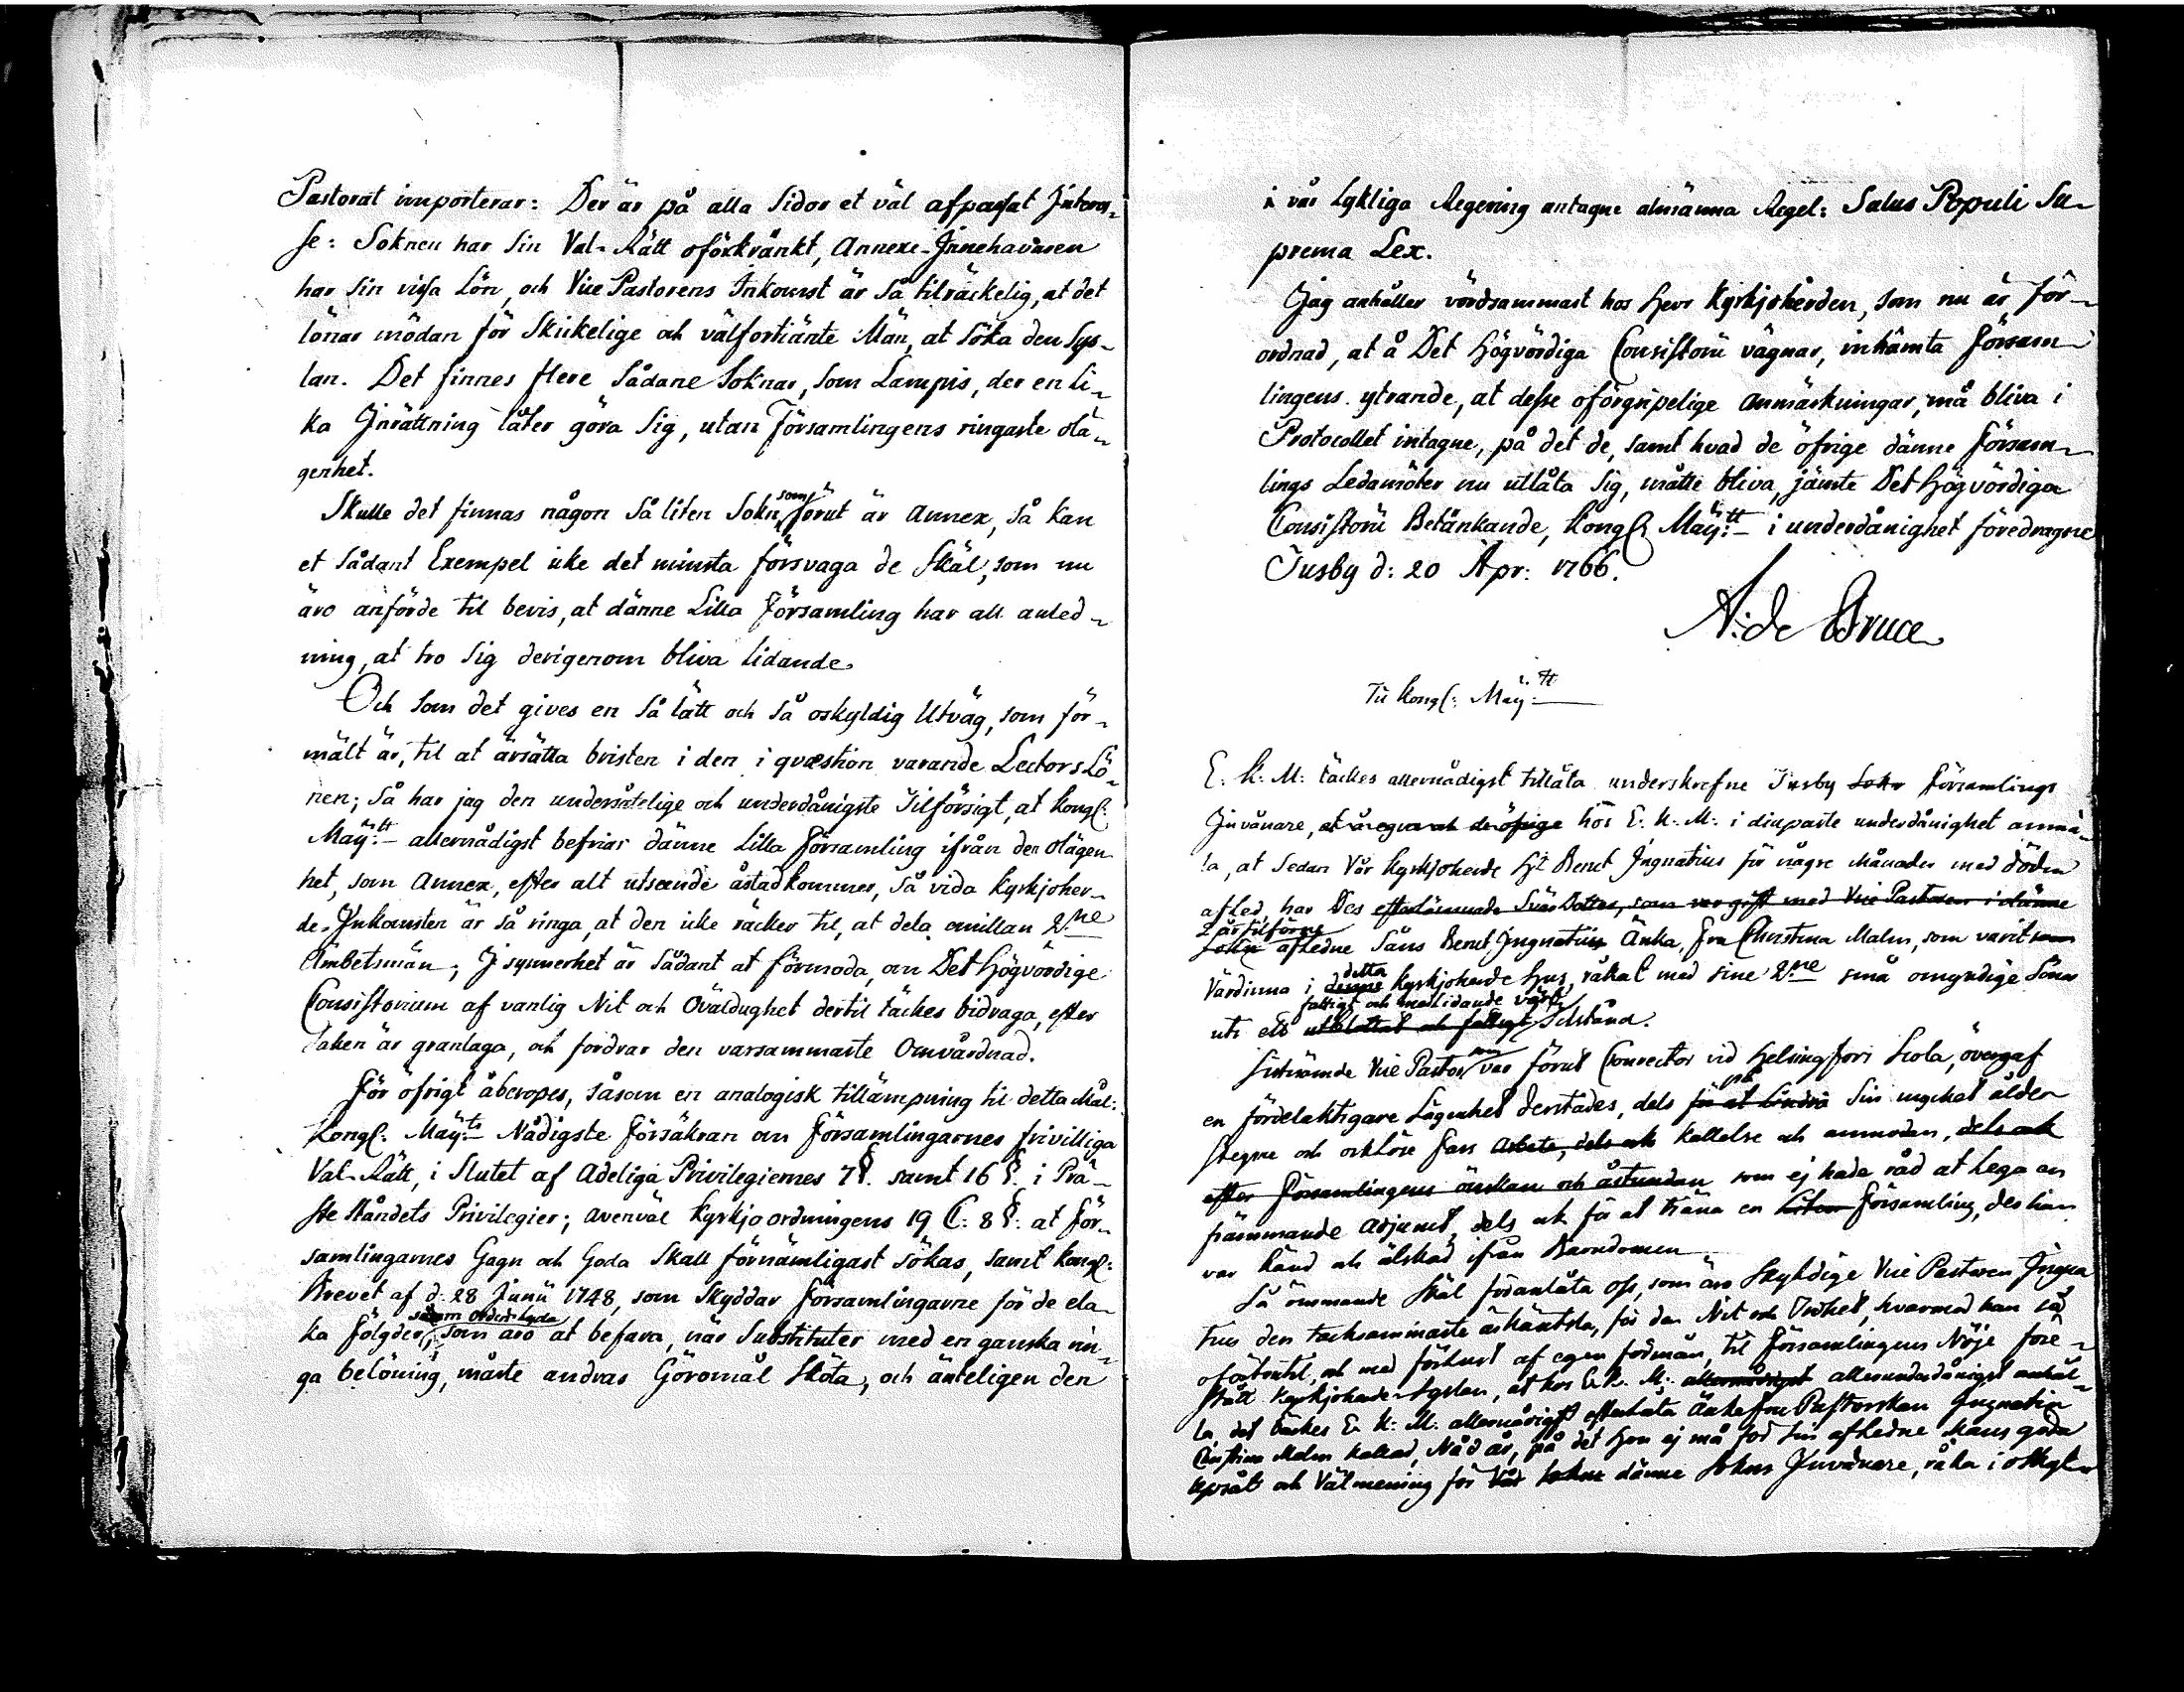 Pastorat importerar: Der är på alla Sidor et väl afpassat Jnteres-
se: Soknen har Sin Val-Rätt oförkränkt, Annexe-Jnnehavaren
har Sin vissa Lön, och Vice Pastorens Inkomst är Så tilräckelig, at det
lönar mödan för Skickelige och välfortiänte Män, at Söka den Sys-
lan. Det finnes flere Sådane Soknar, Som Lampis, der en Li-
ka Jnrättning låter göra Sig, utan Församlingens ringaste olä-
genhet.
Skulle det finnas någon Så liten Sokn, som förut är Annex, Så kan
et Sådant Exempel icke det minsta försvaga de Skäl, som nu
äro anförde til bevis, at dänne Lilla Församling har all anled-
ning, at tro Sig derigenom bliva lidande.
Och Som det gives en Så lätt och Så oskyldig Utväg, som för-
mält är, til at ärsätta bristen i den i qvæstion varande Lectors Lö-
nen; Så har jag den undersåtelige och underdånigste Tilförsigt, at Kongl:
Maij:tt allernådigst befriar dänne Lilla Församling ifrån den Olägen
het, som Annex, efter alt utseende åstadkommer, Så vida Kyrkjoher-
de-Jnkomsten är så ringa, at den icke räcker til, at dela emillan 2:ne
Ämbetsmän; J synnerhet är Sådant at förmoda, om Det Högvördige
Consistorium af vanlig Nit och Oväldughet dertil täckes bidraga, efter
Saken är granlaga, och fordrar den varsammaste Omvårdnad.
För öfrigt åberopes, Såsom en analogisk tillämpning til detta Mål:
Kongl: Maij:ts Nådigste Försäkran om Församlingarnes frivilliga
Val-Rätt, i Slutet af Adeliga Privilegiernes 7 §. samt 16 §. i Prä-
ste Ståndets Privilegier; Avenväl Kyrkjoordningens 19 C: 8 §: at För-
samlingarnes Gagn och Goda Skall förnämligast sökas, samt Kongl:
Brevet af d: 28 Junii 1748, som Skyddar Församlingarne för de ela-
ka fölgder, såsom orden lyda som äro at befara, när Substituter med en ganska rin-
ga belöning, måste andras Göromål Sköta, och änteligen den
i vår Lykliga Regering antagne almänna Regel: Salus Populi Su-
prema Lex.
Jag anhåller vördsammast hos Herr Kyrkjoherden, Som nu är för-
ordnad, at å Det Högvördiga Consistorii vägnar, inhämta Försam-
lingens ytrande, at desse oförgripelige Anmärkningar, må bliva i
Protocollet intagne, på det de, samt hvad de öfrige dänne Försam-
lings Ledamöter nu utlåta Sig, måtte bliva, jämte Det Högvördiga
Consistorii Betänkande, Kongl Maij:tt i underdånighet föredragne
Tusby d: 20 Apr: 1766.
A: de Bruce
Til Kongl: Maij:tt
E: K: M: täckes allernådigst tillåta underskrefne Tusby Sokn Församlings
Jnvånare, hos E: K: M: i diupaste underdånighet anmä-
la, at Sedan Vår Kyrkjoherde Hr Bernt Jngnatius för någre Månader med döden
afled, har Des efterlämnade Svär Dotter, som var gift med Vice Pastoren i dänne
2 år tilförne
Sokn afledne Sons Bernt Jngnatii Änka, fru Christina Malm, som varit
Värdinna i denne detta Kyrkjoherde Hus, råkat med sine 2:ne små omyndige Söner
fattigt och medlidande värdt
uti ett utblottat och fattigt Tilstånd.
Sistnämde Vice Pastor som var förut Conrector vid Helsingfors Scola, övergaf
en fördelaktigare Lägenhet derstädes, dels på för at lindra Sin mycket ålder
stegne och orklöse Fars arbete, dels ock kallelse och anmodan, dels ock
efter Församlingens önskan och åstundan som ej hade råd at Lega en
främmande Adjunct, dels ock för at tiäna en Liten Församling, der han
var känd och älskad ifrån Barndomen.
Så ömmande Skäl föranlåta oss, som äro Skyldige Vice Pastoren Jngna
tius den tacksammaste ärkäntsla, för den Nit och Trohet, hvarmed han så
oförtrutit, och med förlust af egen förmån, til Församlingens Nöje före-
stått Kyrkjoherde-Syslan, at hos E. K. M: allernådigst allerunderdånigst anhål-
la, det täckes E: K: M: allernådigst efterlåta Änkefru Pastorskan Jngnatia
Christina Malm kallad, Nåd år, på det Hon ej må för Sin afledne Mans goda
Upsåt och Välmening för Vår Sokn dänne Sokns Jnvånare, råka i oskyl-